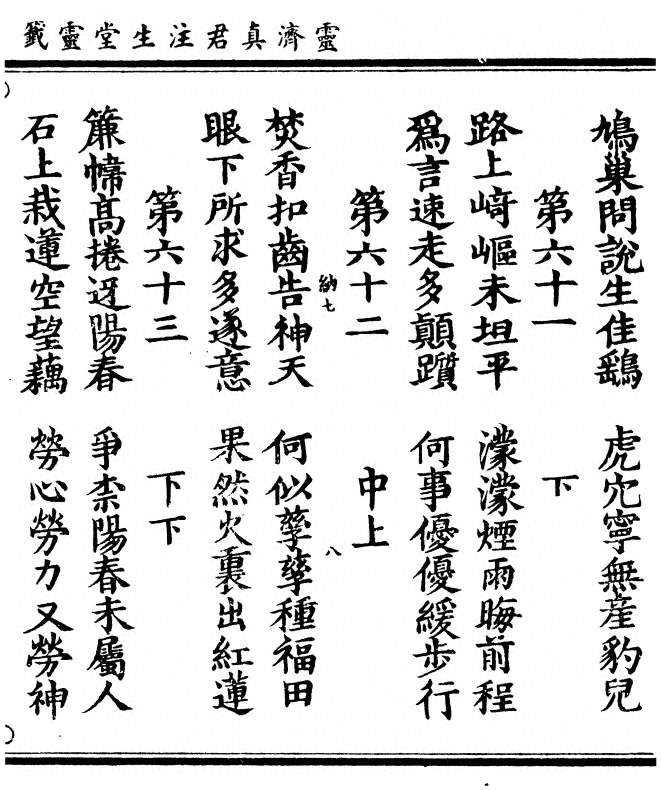 靈濟真君注生堂靈籤
鳩巢問說生佳鷂 虎穴寧無產豹兒
第六十一 下
路上﨑嶇未坦平 濛濛煙雨晦前程
爲言速走多顛躓 何事優優緩步行
第六十二 中上
納七 八
焚香扣齒告神天 何似孳孳種福田
眼下所求多遂意 果然火裏出紅蓮
第六十三 下下
簾幃高捲迓陽春 爭柰陽春未屬人
石上栽蓮空望藕 勞心勞力又勞神